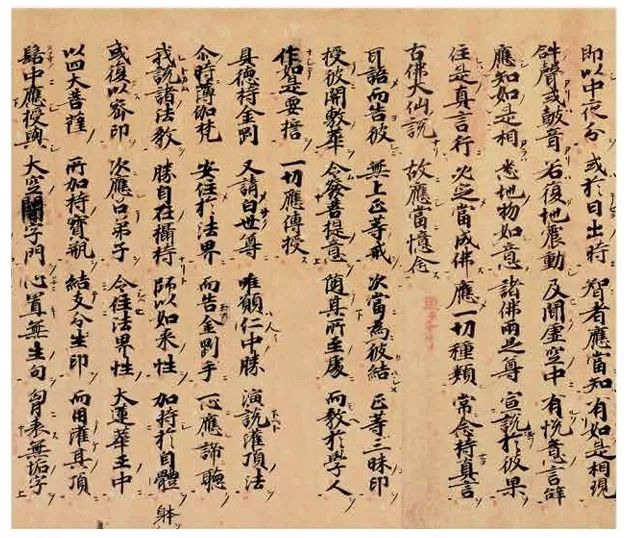 即以中夜分 或於日出時 智者應當知 有如是相現
吽聲或鼓音 若復地震動 及聞虛空中 有悅意言辞
應知如是相 悉地物如意 諸佛兩足尊 宣說於彼果
住是真言行 必定當成佛 應一切種類 常念持真言
古佛大仙說 故應當憶念
可詣而告彼 無上正等戒 次當為彼結 正等三昧印
授彼開敷華 令發菩提意 隨其所至處 而教於學人
作如是要誓 一切應傳授
具德持金剛 又請白世尊 唯願仁中勝 演說灌頂法
尒時薄伽梵 安住於法界 而告金剛手 一心應諦聽
我說諸法教 勝自在攝持 師以如来性 加持於自體 躰
或復以密印 次應召弟子 令住法界性 大蓮華王中
以四大菩薩 所加持寶瓶 結支分生印 而用灌其頂
髻中應授與 大空闇字門 心置無生句 胷表無垢字